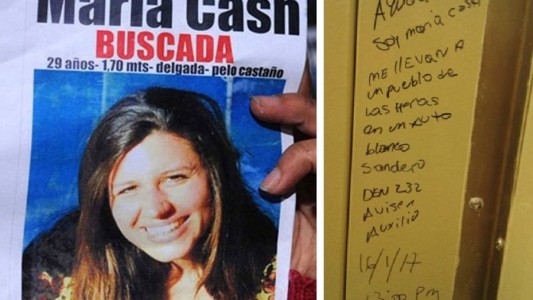 María Cash
BUSCADA
29 años- 1,70 mts- delgada- pelo castaño
Ayuda
Soy maria cash
ME llEVAN A
un pueblo de
Las Heras
en un Auto
blanco
Sandero
DEN 232
Avisen
Auxilio
16/1/17
Pm